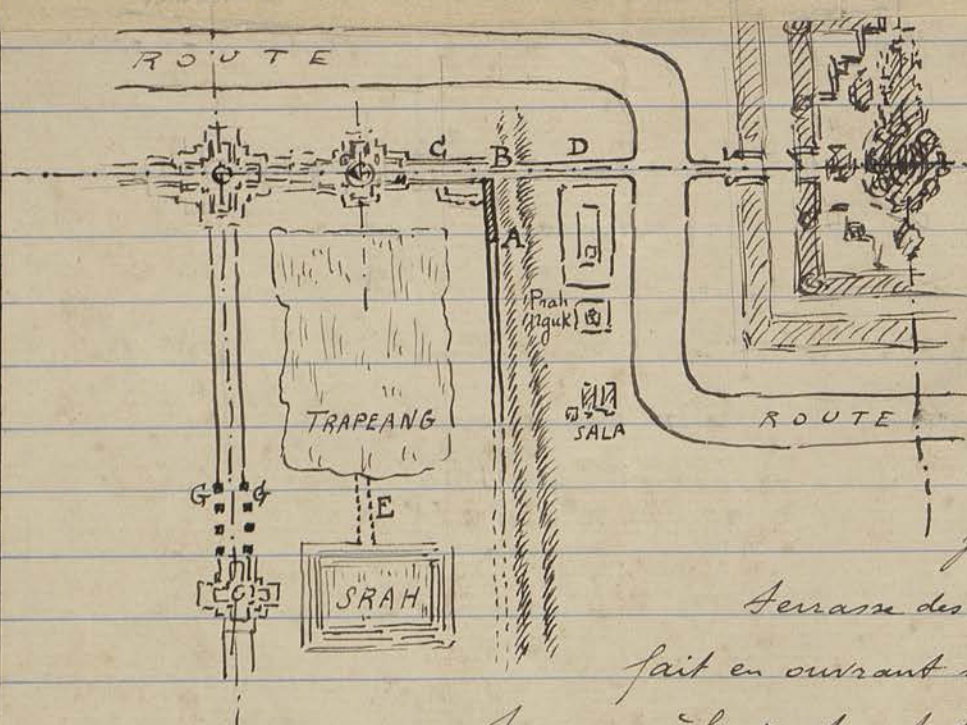 ROUTE
C B D
A
Prah
Nguk
TRAPEANG
SALA
ROUTE
G G
E
SRAH
terrasse des
fait en ouvrant